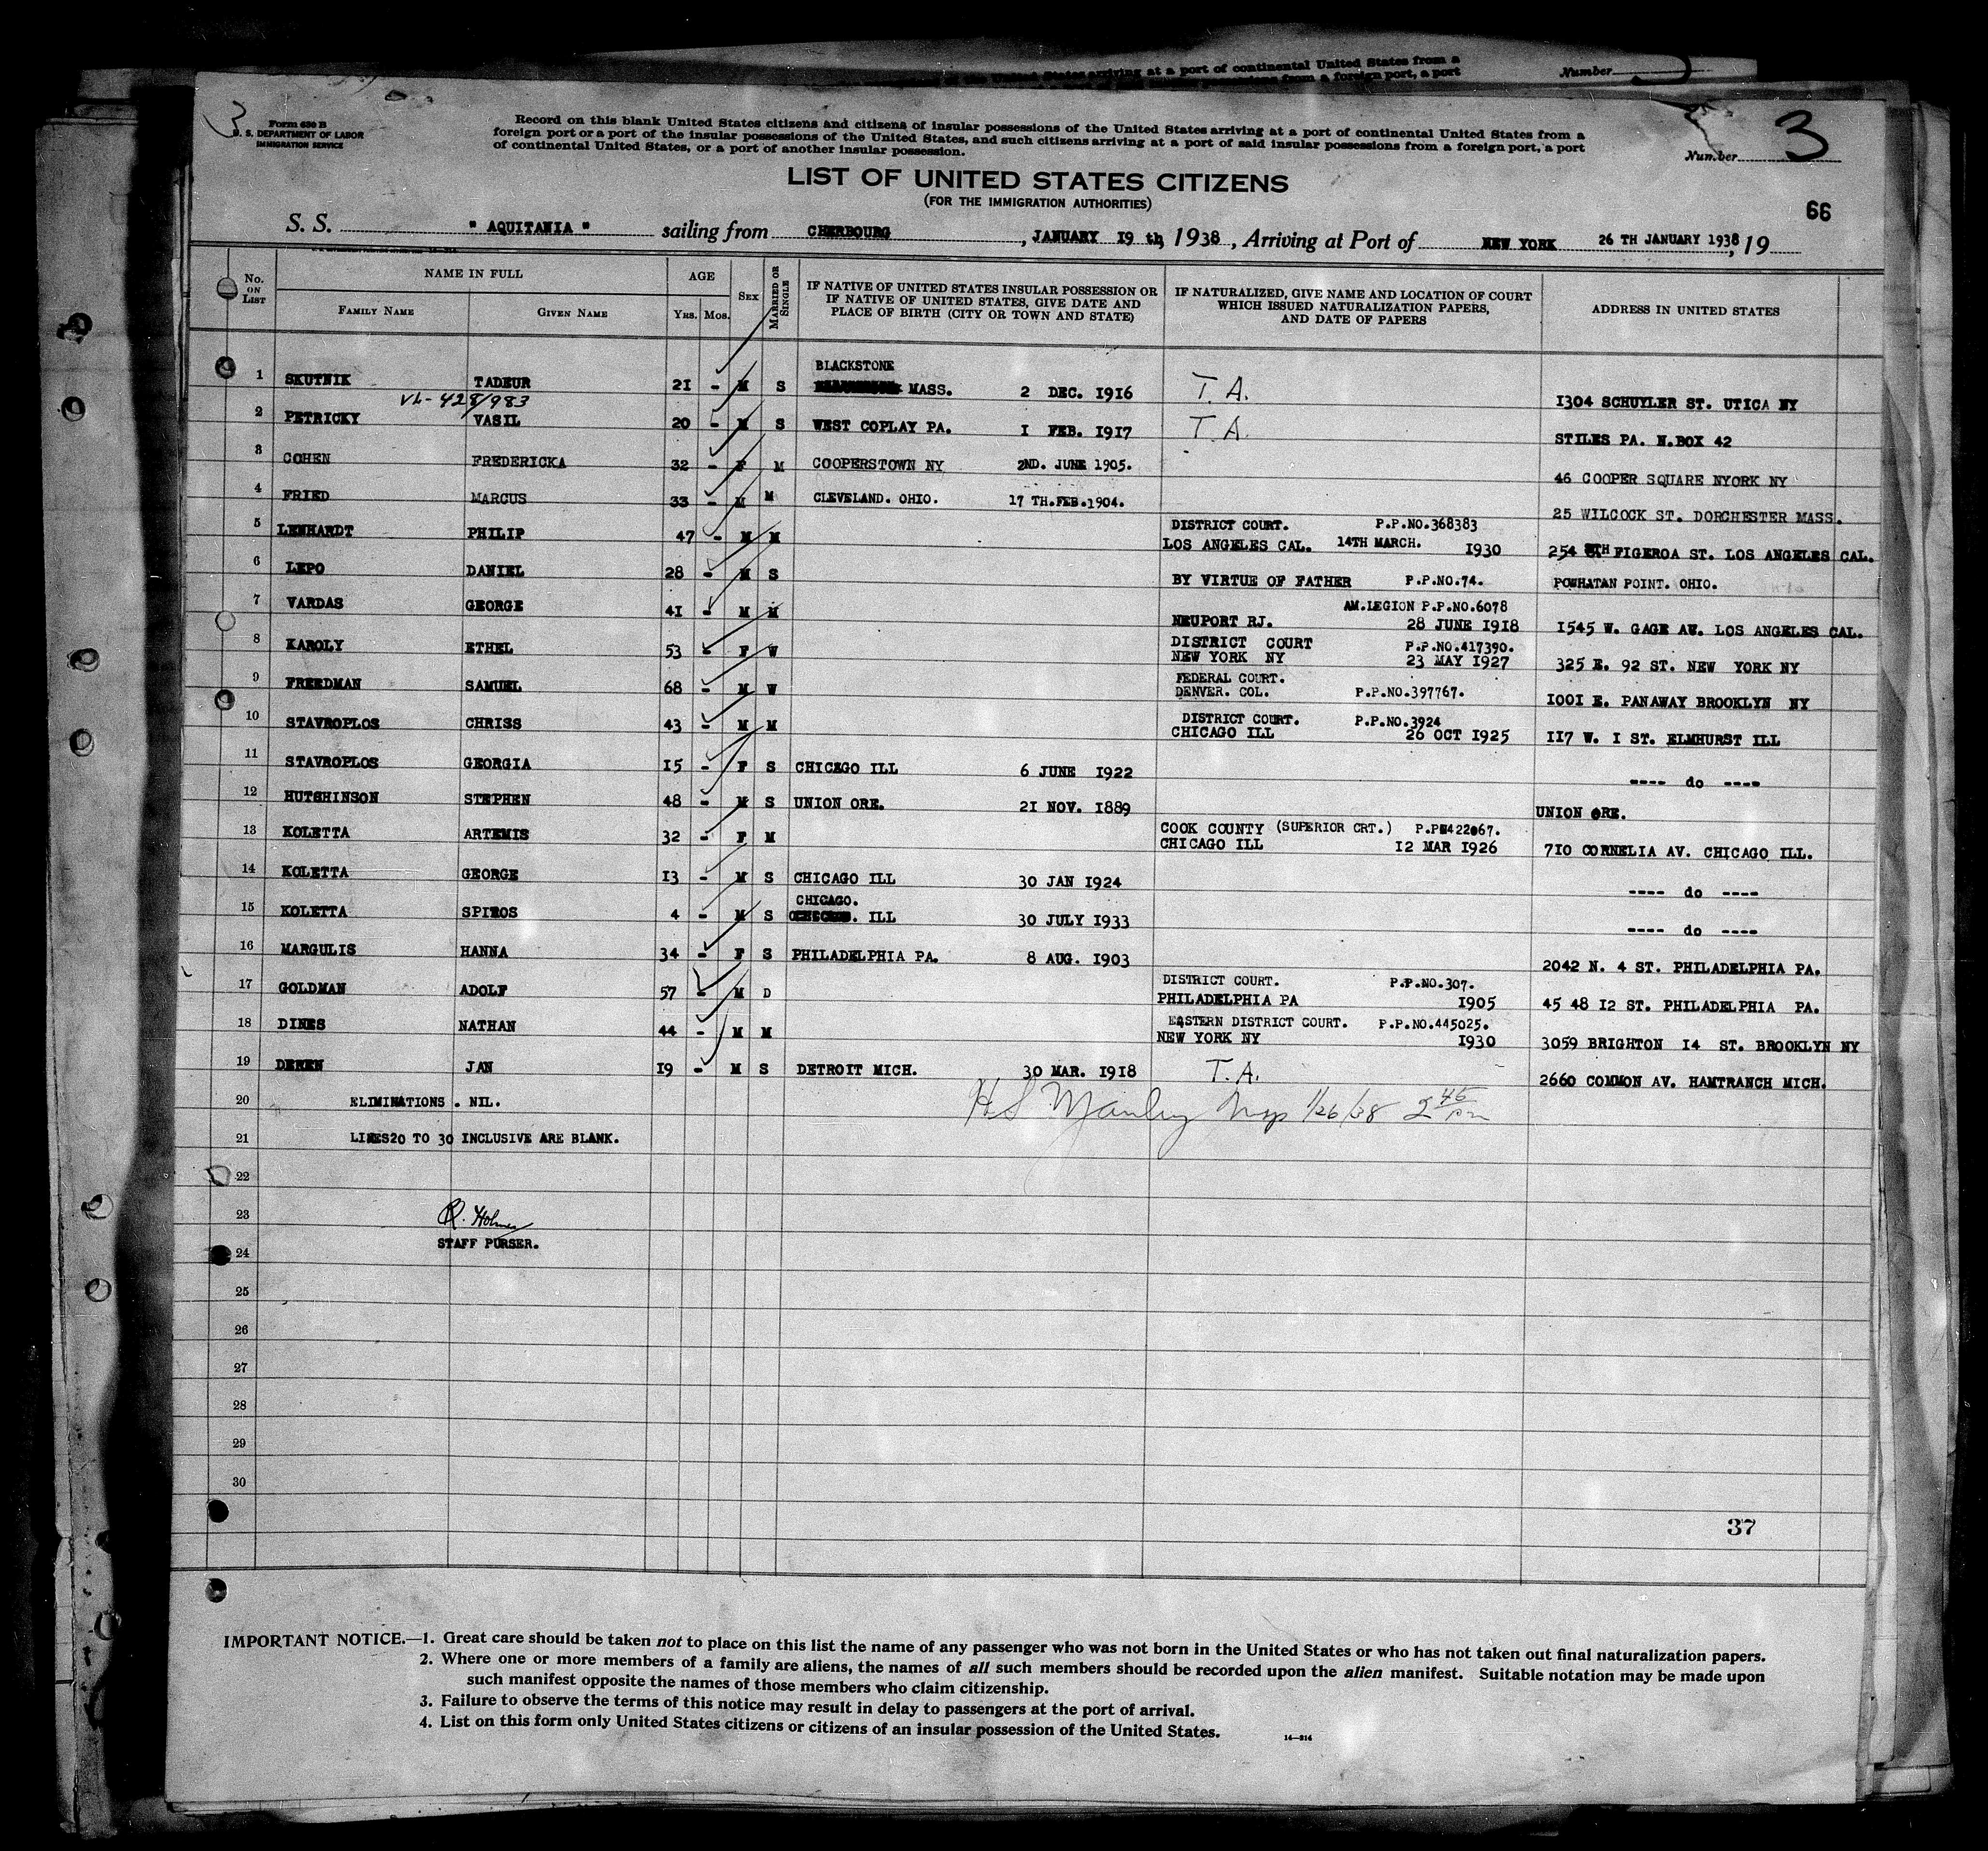 of continental United States from a
arriving at a port of continental United States from a foreign port, a port
Number
3
Form 630 B
U. S. DEPARTMENT OF LABOR
IMMIGRATION SERVICE
Record on this blank United States citizens and citizens of insular possessions of the United States arriving at a port of continental United States from a
foreign port or a port of the insular possessions of the United States, and such citizens arriving at a port of said insular possessions from a foreign port, a port
of continental United States, or a port of another insular possession.
Number 3
LIST OF UNITED STATES CITIZENS
(FOR THE IMMIGRATION AUTHORITIES)
66
S. S. "AQUITANIA" sailing from CHERBOURG, JANUARY 19 th, 1938, Arriving at Port of NEW YORK 26 TH JANUARY 1938, 19
No. ON LIST NAME IN FULL AGE SEX MARRIED OR SINGLE IF NATIVE OF UNITED STATES INSULAR POSSESSION OR IF NATIVE OF UNITED STATES, GIVE DATE AND PLACE OF BIRTH (CITY OR TOWN AND STATE) IF NATURALIZED, GIVE NAME AND LOCATION OF COURT WHICH ISSUED NATURALIZATION PAPERS, AND DATE OF PAPERS ADDRESS IN UNITED STATES
FAMILY NAME GIVEN NAME YRS. MOS.
BLACKSTONE
1 SKUTNIK TADEUR 21 - M S MASS. 2 DEC. 1916 T.A. 1304 SCHUYLER ST. UTICA NY
VL-428/983
2 PETRICKY VASIL 20 - M S WEST COPLAY PA. 1 FEB. 1917 T.A. STILES PA. N.BOX 42
3 COHEN FREDERICKA 32 - F M COOPERSTOWN NY 2ND. JUNE 1905. 46 COOPER SQUARE NYORK NY
4 FRIED MARCUS 33 - M M CLEVELAND. OHIO. 17 TH.FEB.1904. 25 WILCOCK ST. DORCHESTER MASS.
DISTRICT COURT. P.P.NO.368383
5 LENHARDT PHILIP 47 - M M LOS ANGELES CAL. 14TH MARCH. 1930 254 FIGEROA ST. LOS ANGELES CAL.
6 LEPO DANIEL 28 - M S BY VIRTUE OF FATHER P.P.NO.74. POWHATAN POINT. OHIO.
AM.LEGION P.P.NO.6078
7 VARDAS GEORGE 41 - M M NEUPORT RJ. 28 JUNE 1918 1545 W. GAGE AV. LOS ANGELES CAL.
DISTRICT COURT P.P.NO.417390.
8 KAROLY ETHEL 53 - F W NEW YORK NY 23 MAY 1927 325 E. 92 ST. NEW YORK NY
FEDERAL COURT.
9 FREEDMAN SAMUEL 68 - M W DENVER. COL. P.P.NO.397767. 1001 E. PANAWAY BROOKLYN NY
DISTRICT COURT. P.P.NO.3924
10 STAVROPLOS CHRISS 43 - M M CHICAGO ILL 26 OCT 1925 117 W. I ST. ELMHURST ILL
11 STAVROPLOS GEORGIA 15 - F S CHICAGO ILL 6 JUNE 1922 ---- do ----
12 HUTCHINSON STEPHEN 48 - M S UNION ORE. 21 NOV. 1889 UNION ORE.
COOK COUNTY (SUPERIOR CRT.) P.P#422067.
13 KOLETTA ARTEMIS 32 - F M CHICAGO ILL 12 MAR 1926 710 CORNELIA AV. CHICAGO ILL.
14 KOLETTA GEORGE 13 - M S CHICAGO ILL 30 JAN 1924 ---- do ----
CHICAGO.
15 KOLETTA SPIROS 4 - M S . ILL 30 JULY 1933 ---- do ----
16 MARGULIS HANNA 34 - F S PHILADELPHIA PA. 8 AUG. 1903 2042 N. 4 ST. PHILADELPHIA PA.
DISTRICT COURT. P.P.NO.307.
17 GOLDMAN ADOLF 57 - M D PHILADELPHIA PA 1905 45 48 12 ST. PHILADELPHIA PA.
EASTERN DISTRICT COURT. P.P.NO.445025.
18 DINES NATHAN 44 - M M NEW YORK NY 1930 3059 BRIGHTON 14 ST. BROOKLYN NY
19 DEREN JAN 19 - M S DETROIT MICH. 30 MAR. 1918 T.A. 2660 COMMON AV. HAMTRANCH MICH.
20 ELIMINATIONS . NIL. 1/26/38 2 45 pm
21 LINES20 TO 30 INCLUSIVE ARE BLANK.
22
23 R. Holmes
STAFF PURSER.
24
25
26
27
28
29
30
37
IMPORTANT NOTICE.—1. Great care should be taken not to place on this list the name of any passenger who was not born in the United States or who has not taken out final naturalization papers.
2. Where one or more members of a family are aliens, the names of all such members should be recorded upon the alien manifest. Suitable notation may be made upon
such manifest opposite the names of those members who claim citizenship.
3. Failure to observe the terms of this notice may result in delay to passengers at the port of arrival.
4. List on this form only United States citizens or citizens of an insular possession of the United States.
14—814